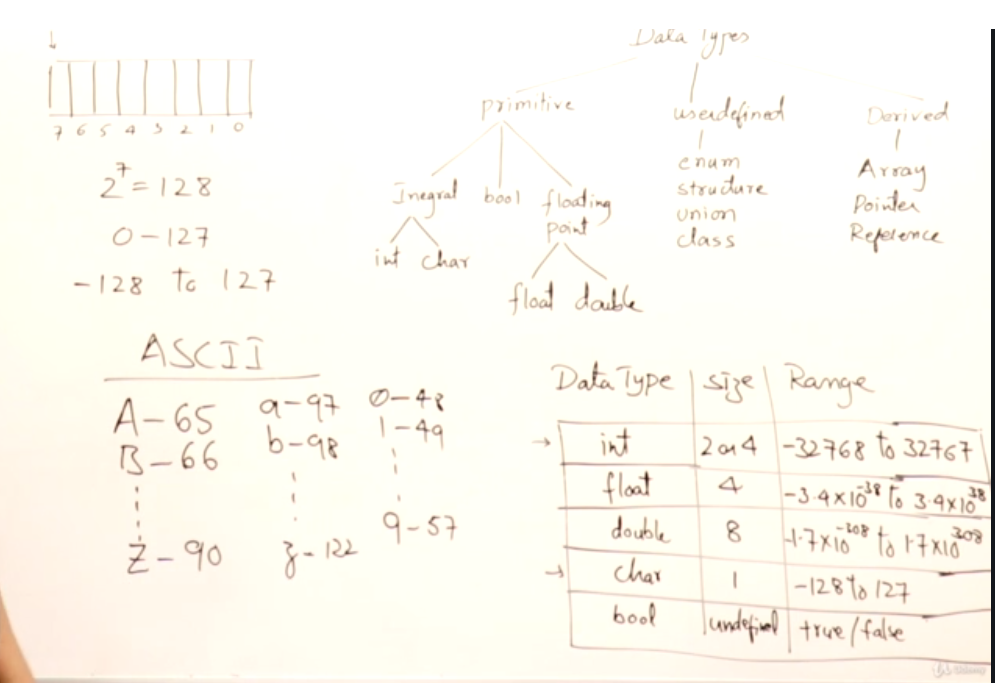 7 6 5 4 3 2 1 0
2^7 = 128
0 - 127
-128 to 127
Data Types
primitive
userdefined
Derived
Inegral bool floating
point
int char
float double
enum
structure
union
class
Array
Pointer
Reference
ASCII
A - 65 a - 97 0 - 48
B - 66 b - 98 1 - 49
9 - 57
Z - 90 z - 122
Data Type | size | Range
int | 2 or 4 | -32768 to 32767
float | 4 | -3.4×10^-38 to 3.4×10^38
double | 8 | -1.7×10^-308 to 1.7×10^308
char | 1 | -128 to 127
bool | undefined | true/false